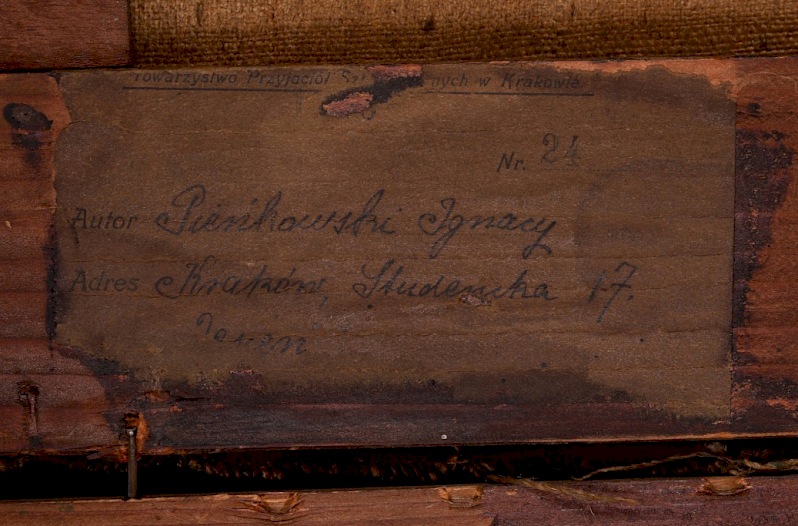 Towarzystwo Przyjaciół w Krakowie
Nr. 24
Autor Pieńkowski Ignacy
Adres Kraków, Studencka 17.